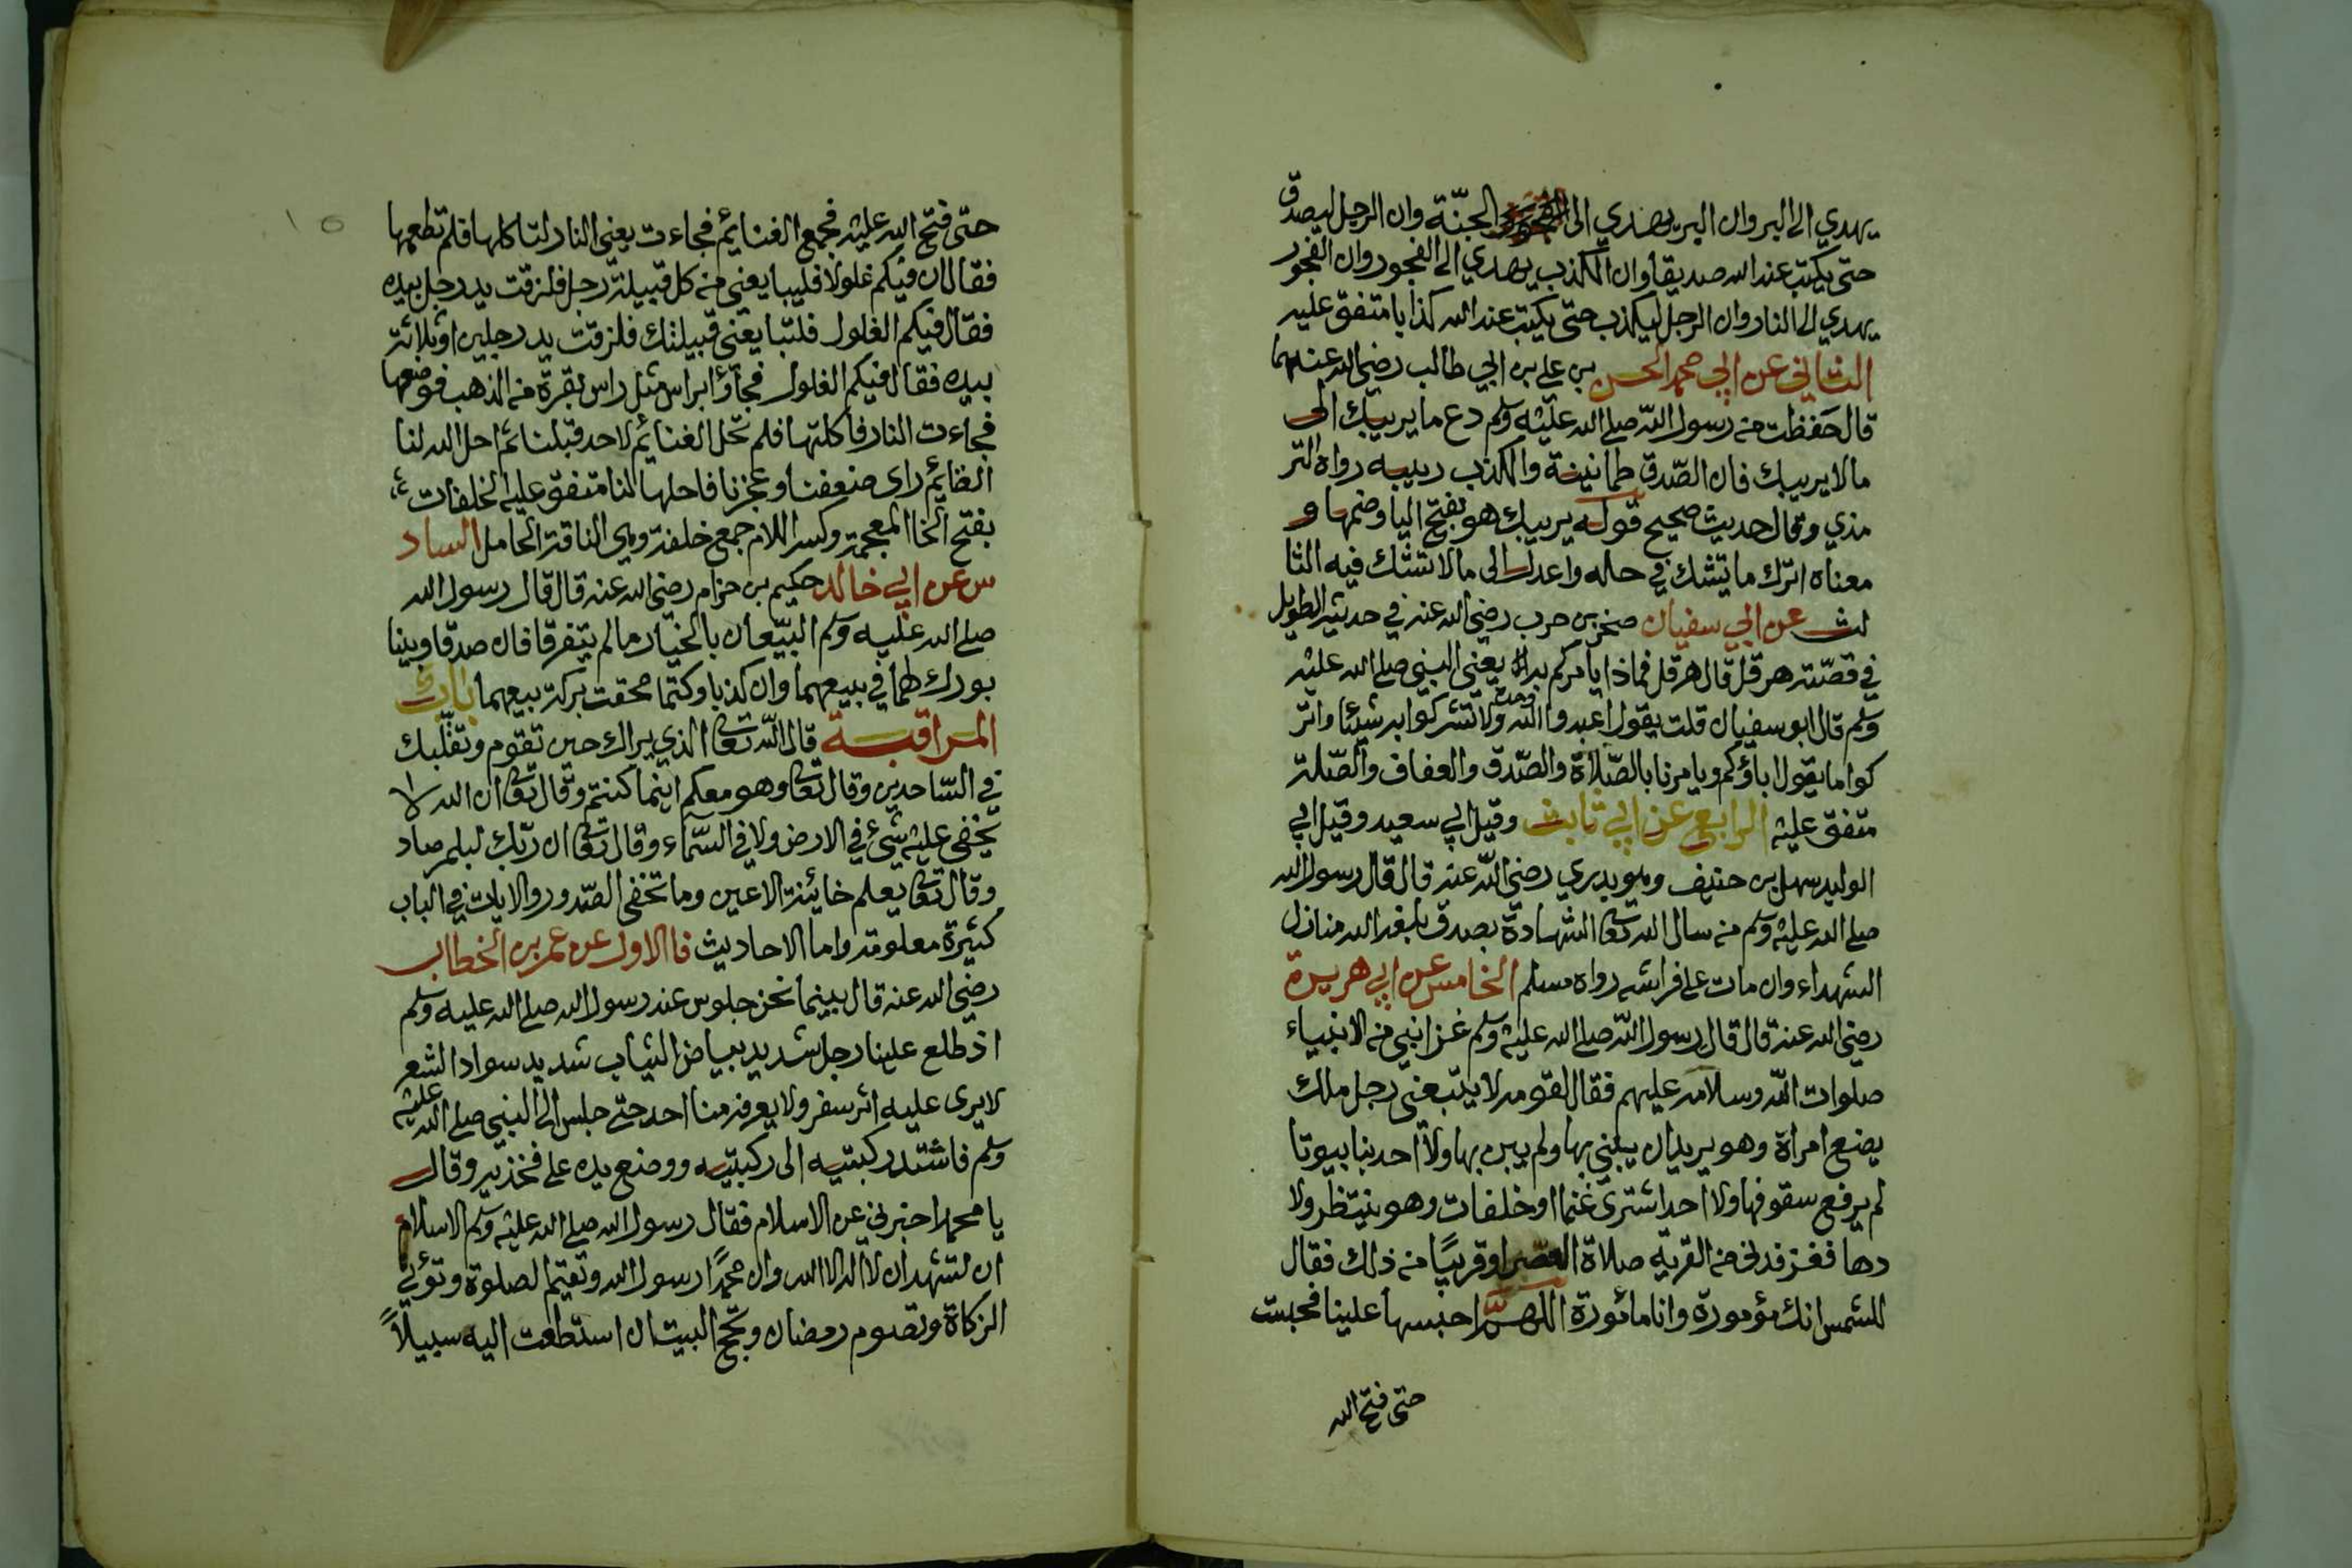 يهدي الى البر وان البر يهدي الى الجنّة وان الرجل ليصدق
حتى يكتب عند الله صديقا وان الكذب يهدي الى الفجور وان الفجور
يهدي الى النار وان الرجل ليكذب حتى يكتب عند الله كذابا متفق عليه
الثاني عن ابي محمد الحسن بن علي بن ابي طالب رضي الله عنهما
قال حَفظت من رسول الله صلى الله عليه وسلم دع ما يريبك الى
مالا يريبك فان الصّدق طمانينة والكذب ريبه رواه التر
مذي وقال حديث صحيح قوله يريبك هو بفتح اليا وضمها و
معناه اترك ما تشك في حله واعدل الى مالا تشك فيه الثا
لث عن ابي سفيان صخر بن حرب رضي الله عنه في حديثه الطويل
في قصّته هرقل قال هرقل فماذا يأمركم به يعني النبي صلى الله عليه
وسلم قال ابو سفيان قلت يقول اعبدوا الله وحده ولا تشركوا به شيئا واتر
كوا ما يقول اباؤكم ويامرنا بالصّلاة والصّدق والعفاف والصّلة
متفق عليه الرابع عن ابي ثابت وقيل ابي سعيد وقيل ابي
الوليد سهل بن حنيف وهو بدري رضي الله عنه قال قال رسول الله
صلى الله عليه وسلم من سال الله تعالى الشهادة بصدق بلغه الله منازل
الشهداء وان مات على فراشه رواه مسلم الخامس عن ابي هريرة
رضي الله عنه قال قال رسول الله صلى الله عليه وسلم غزا نبي من الانبياء
صلوات الله وسلامه عليهم فقال لقومه لا يتبعني رجل ملك
بضع امراة وهو يريد ان يبني بها ولم يبن بها ولا احد بنا بيوتا
لم يرفع سقوفها ولا احد اشترى غنما او خلفات وهو ينتظر ولا
دها فغزا فدنى من القرية صلاة العصر او قريبًا من ذلك فقال
للشمس انك مؤمورة وانا مائورة اللهمّ احبسها علينا فحبست
حتى فتح الله
١٥
حتى فتح الله عليه فجمع الغنايم فجاءت يعني النار لتاكلها فلم تطعمها
فقال ان فيكم غلولا فليبايعني من كل قبيلة رجل فلزقت يد رجل بيده
فقال فيكم الغلول فلتبايعني قبيلتك فلزقت يد رجلين او ثلاثة
بيده فقال فيكم الغلول فجاؤا براس مثل راس بقرة من الذهب فوضعها
فجاءت النار فاكلتها فلم تحل الغنايم لاحد قبلنا ثم احل الله لنا
الغنايم راى ضعفنا وعجزنا فاحلها لنا متفق عليه الخلفات
بفتح الخا المعجمة وكسر اللام جمع خلفة وهي الناقة الحامل الساد
س عن ابي خالد حكيم بن حزام رضي الله عنه قال قال رسول الله
صلى الله عليه وسلم البيّعان بالخيار ما لم يتفرقا فان صدقا وبينا
بورك لهما في بيعهما وان كذبا وكتما محقت بركة بيعهما باب
المراقبة قال الله تعالى الذي يراك حين تقوم وتقلّبك
في السّاجدين وقال تعالى وهو معكم اينما كنتم وقال تعالى ان الله لا
يخفى عليه شيء في الارض ولا في السّماء وقال تعالى ان ربّك لبلمرصاد
وقال تعالى يعلم خائنة الاعين وما تخفى الصّدور والايات في الباب
كثيرة معلومه واما الاحاديث فالاول عن عمر بن الخطاب
رضي الله عنه قال بينما نحن جلوس عند رسول الله صلى الله عليه وسلم
اذ طلع علينا رجل شديد بياض الثياب شديد سواد الشعر
لا يرى عليه اثر سفر ولا يعرفه منا احد حتى جلس الى النبي صلى الله عليه
وسلم فاشتد ركبتيه الى ركبتيه ووضع يده على فخذيه وقال
يا محمد اخبرني عن الاسلام فقال رسول الله صلى الله عليه وسلم الاسلام
ان تشهد ان لا اله الا الله وان محمدًا رسول الله وتقيم الصلوة وتؤتي
الزكاة وتصوم رمضان وتحج البيت ان استطعت اليه سبيلاً